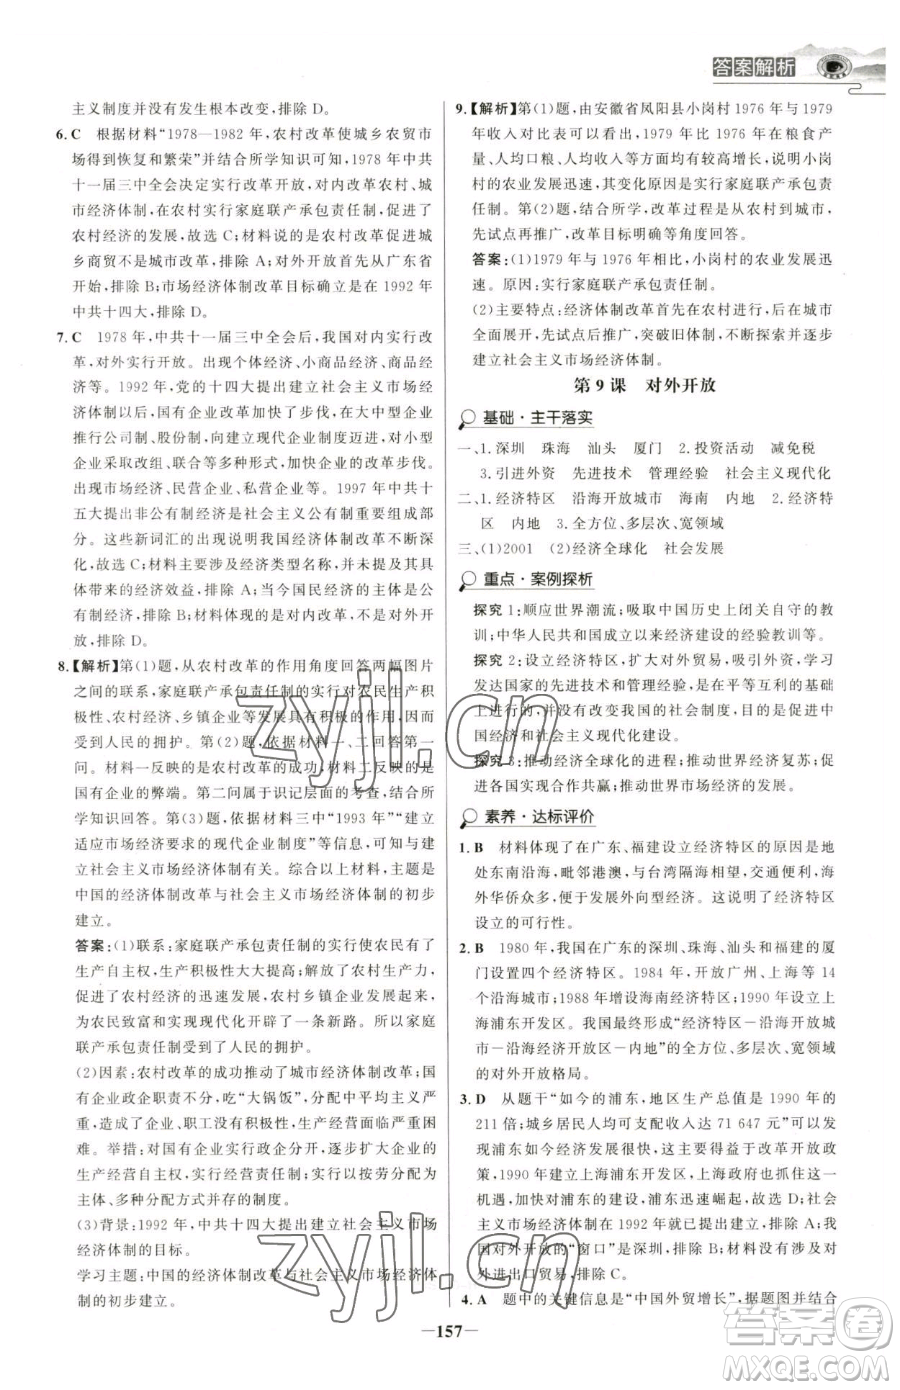 答案解析
主义制度并没有发生根本改变,排除 D。
6. C 根据材料“1978—1982 年,农村改革使城乡农贸市
场得到恢复和繁荣”并结合所学知识可知,1978 年中共
十一届三中全会决定实行改革开放,对内改革农村、城
市经济体制,在农村实行家庭联产承包责任制,促进了
农村经济的发展,故选 C;材料说的是农村改革促进城
乡商贸市场的繁荣,排除 A;对外开放首先从广东省
开始,排除 B;市场经济体制改革目标确立是在 1992 年
中共十四大,排除 D。
7. C 1978 年,中共十一届三中全会后,我国对内实行改
革,对外实行开放。出现个体经济、小商品经济、商品经
济等。1992 年,党的十四大提出建立社会主义市场经
济体制以后,国有企业改革加快了步伐,在大中型企业
推行公司制、股份制,向建立现代企业制度迈进;对小型
企业采取改组、联合等多种形式,加快改革的步伐。
出现市场经济、民营企业、私营企业等。1997 年中共十
五大提出非公有制经济是社会主义重要组成部
分。这些新词汇的出现说明我国经济体制改革不断深
化,故选 C;材料主要涉及经济类型名称,并未提及其具
体带来的经济效益,排除 A;当今国民经济的主体是公
有制经济,排除 B;材料体现的是对内改革,不是对外开
放,排除 D。
8.【解析】第(1)题,从农村改革的作用角度回答两幅图片
之间的联系,家庭联产承包责任制的实行对农民生产积
极性、农村经济、乡镇企业等发展具有积极的作用,因而
受到人民的拥护。第(2)题,依据材料一、二回答第一
问。材料一反映的是农村改革的成功,材料二反映的是
国有企业的弊端。第二问属于识记层面的考查,根据所
学知识回答。第(3)题,依据材料三中“1993 年”“建立
适应市场经济要求的现代企业制度”等信息,可知与建
立社会主义市场经济体制有关。综合以上材料,主题是
中国的经济体制改革与社会主义市场经济体制的初步
建立。
答案:(1)联系:家庭联产承包责任制的实行使农民有了
生产自主权,生产积极性大大提高;解放了农村生产力,
促进了农村经济的迅速发展,农村乡镇企业发展起来,
为农民致富和实现现代化开辟了一条新路。所以家庭
联产承包责任制受到了人民的拥护。
(2)因素:农村改革的成功推动了城市经济体制改革;国
有企业政企职责不分,吃“大锅饭”,平均主义严
重,造成了企业、职工没有积极性,生产经营严重困
难。举措:对国有企业实行政企分开,逐步扩大企业的
生产经营自主权,实行经营责任制;实行以按劳分配为
主体、多种分配方式并存的制度。
(3)背景:1992 年,中共十四大提出建立社会主义市场
经济体制的目标。
学习主题:中国的经济体制改革与社会主义市场经济体
制的初步建立。
9.【解析】第(1)题,由安徽省凤阳县小岗村 1976 年与 1979
年收入对比表可以看出,1979 年比 1976 年在粮食产
量、人均口粮、人均收入等方面均有较高增长,说明小岗
村的农业发展迅速,其变化原因是实行家庭联产承包责
任制。第(2)题,结合所学,改革过程是从农村到城市,
先试点再推广,改革目标明确等角度回答。
答案:(1)1979 年与 1976 年相比,小岗村的农业发展迅
速。原因:实行家庭联产承包责任制。
(2)主要特点:经济体制改革首先在农村进行,后在城市
全面展开;先试点后推广,破除旧体制,不断探索并逐步
建立社会主义市场经济体制。
第 9 课 对外开放
基础·主干落实
一、1. 深圳 珠海 汕头 厦门 2. 投资活动 减免税
3. 引进外资 先进技术 管理经验 社会主义现代化
二、1. 经济特区 沿海开放城市 海南 内地 2. 经济特
区 内地 3. 全方位、多层次、宽领域
三、(1)2001 (2)经济全球化 社会发展
重点·案例探析
探究 1:顺应世界潮流;吸取中国历史上闭关自守的教
训;中华人民共和国成立以来经济建设的经验教训等。
探究 2:建立经济特区,扩大对外贸易,吸引外资,学习
发达国家的先进技术和管理经验,是在平等互利的基础
上进行的,并没有改变我国的社会制度,目的是促进中
国经济和社会主义现代化建设。
探究 3:推动经济全球化的进程;推动世界经济复苏;促
进各国实现合作共赢;推动世界市场经济的发展。
素养·达标评价
1. B 材料体现了在广东、福建建设经济特区的原因是地
处东南沿海,毗邻港澳,与台湾隔海相望,交通便利,海
外华侨众多,可以发展外向型经济。这说明了经济特区
设立的可行性。
2. B 1980 年,我国在广东的深圳、珠海、汕头和福建的厦
门设置四个经济特区。1984 年,开放广州、上海等 14
个沿海城市;1988 年增设海南经济特区;1990 年设立上
海浦东开发区。我国最终形成“经济特区—沿海开放城
市—沿海经济开放区—内地”的全方位、多层次、宽领域
的对外开放格局。
3. D 从题干“如今的浦东,地区生产总值是 1990 年的
211 倍;城乡居民人均可支配收入达 71 647 元”可以看
出,浦东如今经济发展迅速,这主要得益于改革开放政
策,1990 年建立上海浦东开发区,上海政府也抓住这一
机遇,加快对浦东的发展,浦东迅速崛起,故选 D;社会
主义市场经济体制在 1992 年就提出建立,排除 A;我
国对外开放的“窗口”是深圳,排除 B;材料没有涉及对
外进出口贸易,排除 C。
4. A 题中的关键信息是“中国外贸增长”,据题图并结合
—157—
zyjl.cn
zyjl.cn
答案圈
MXQE.COM